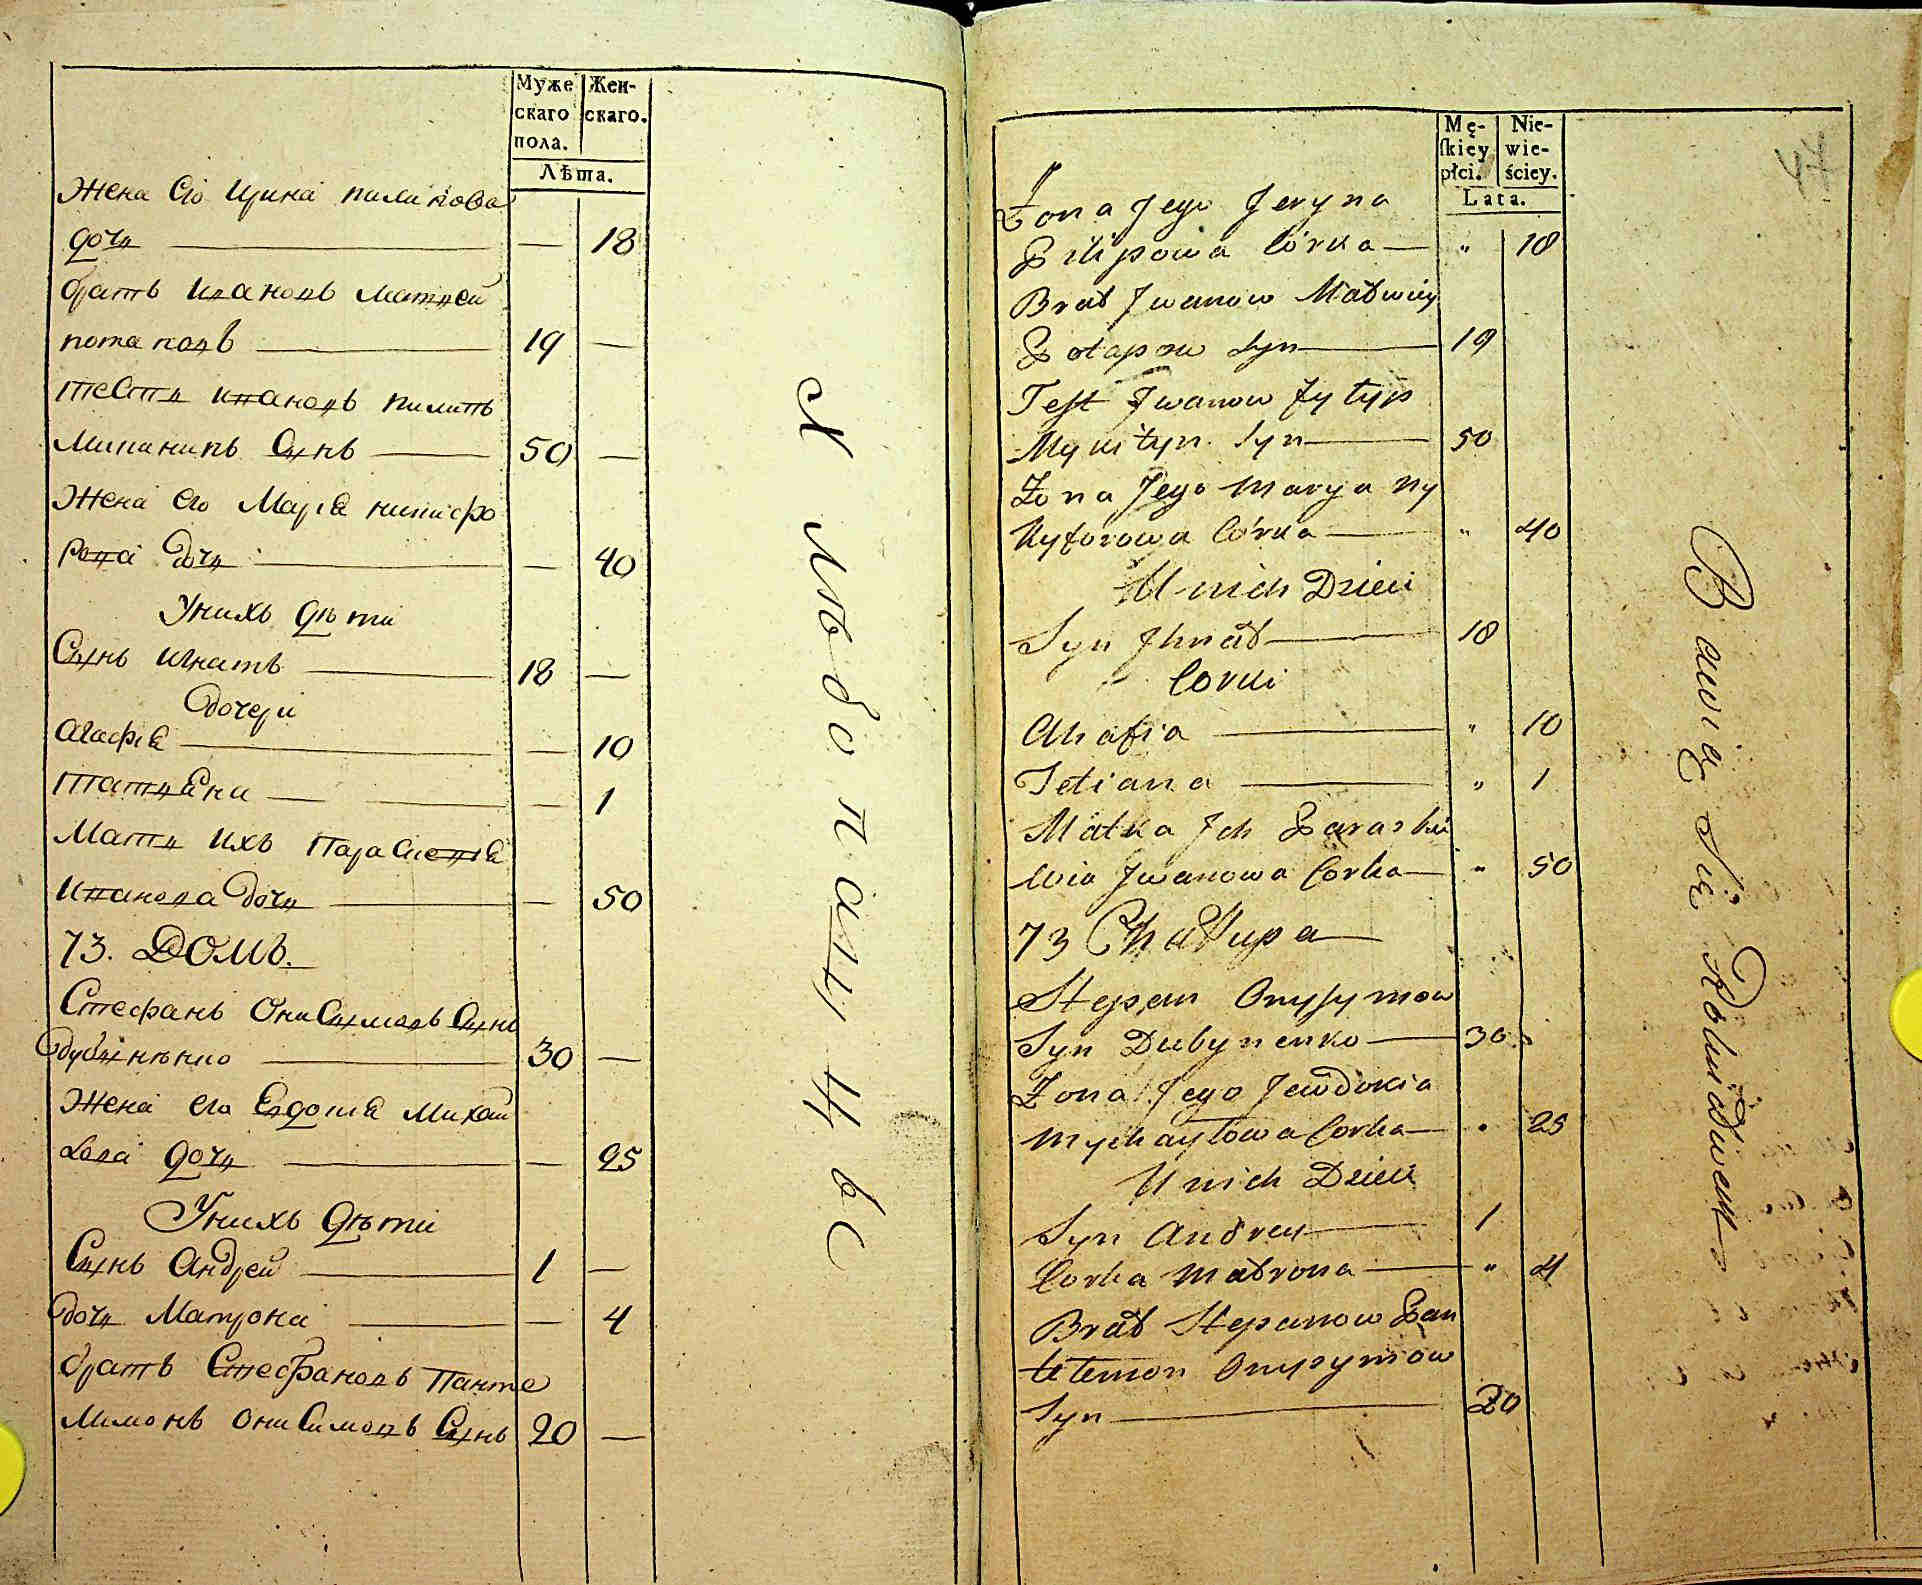 Муже
скаго
пола.
Жен-
скаго.
Лѣта.
Жена его Ирина пилипова
дочь — 18
братъ Ивановъ Матвей
потаповъ 19 —
тесть ивановъ пилипъ
Микитинъ Сынъ 50 —
Жена его Марія никифо
рова дочь — 40
У нихъ дѣти
Сынъ игнатъ 18 —
дочери
Агафія — 10
татіяна — 1
Мать ихъ Параскевія
Иванова дочь — 50
73. Домъ.
Стефанъ Онисимовъ Сынъ
дубиненко 30 —
Жена его Евдокія Михай
лова дочь — 25
У нихъ дѣти
Сынъ Андрей 1 —
дочь Матрона — 4
братъ Стефановъ Панте
лимонъ Онисимовъ Сынъ 20 —
Хлѣбопашцы
Mę-
ſkiey
płci.
Nie-
wie-
ściey.
Lata.
Żona Jego Jeryna
Pilipowa Córka — " 18
Brat Jwanow Matwiey
Potapow Syn — 19
Test Jwanow fylyp
Mykityn Syn — 50
Żona Jego Marya Ny
kyforowa Córka — " 40
U nich Dzieci
Syn Jhnat — 18
Corki
Ahafia — " 10
Tetiana — " 1
Matka Jch Parask
wia Jwanowa Corka — " 50
73 Chałupa
Stepan Onysymow
Syn Dubynenko — 30
Żona Jego Jewdokia
Mychayłowa Corka — " 25
U nich Dzieci
Syn Andrey — 1
Corka Matrona — " 4
Brat Stepanow Pan
telemon Onysymow
Syn — 20
Bawią się Rolnictwem